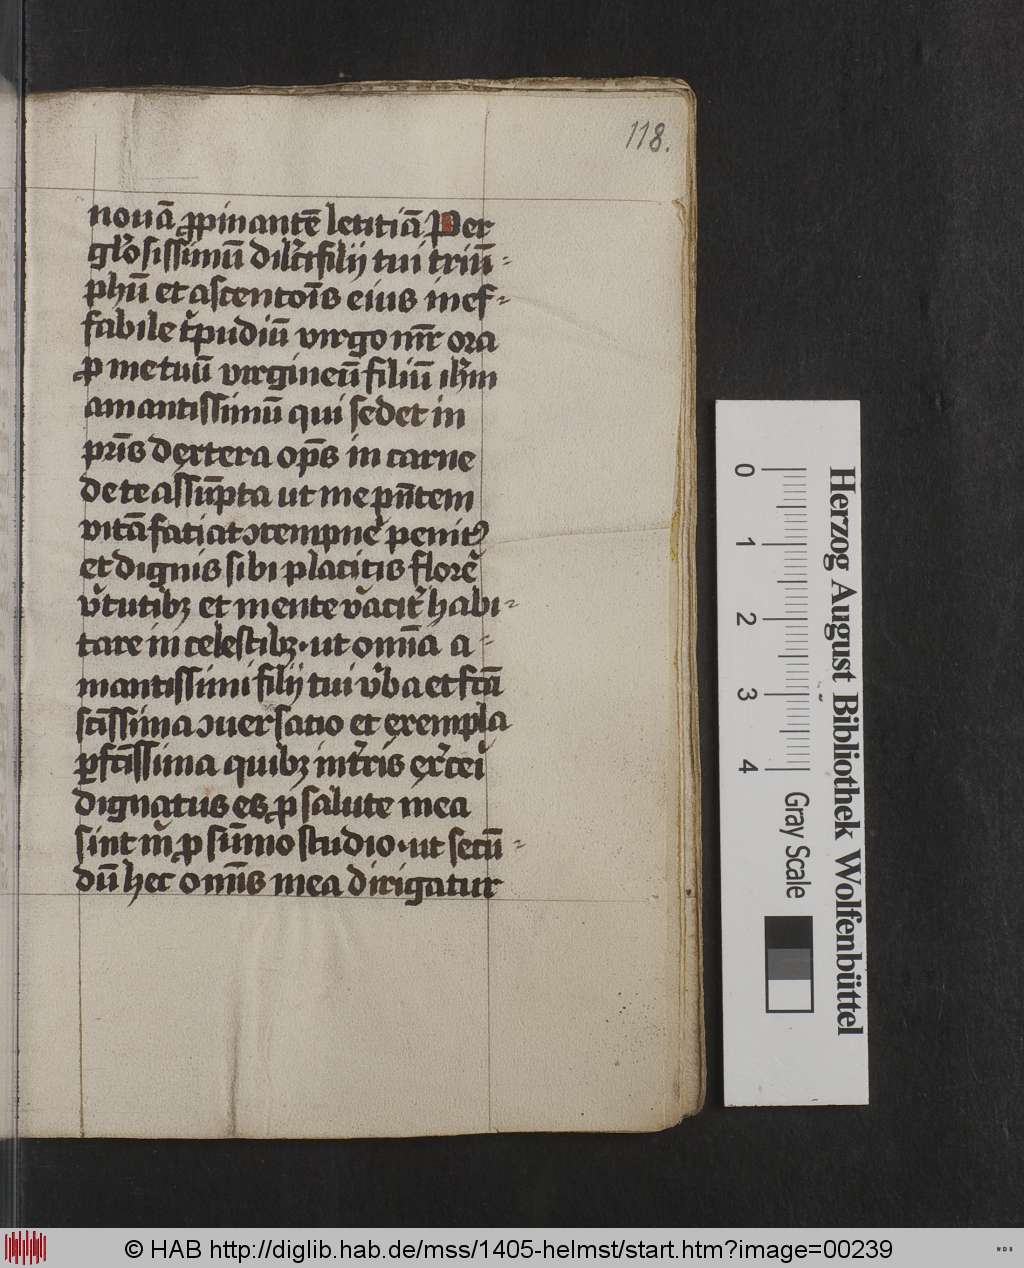 118.
nouā ꝓpinantē letitiā Per
gl'osissimū dilc̄i filij tui triū-
phū et ascentōis eius inef-
fabile t'pudiū virgo mr̄ ora
ꝓ me tuū virgineū filiū ih'm
amantissimū qui sedet in
pr̄is dextera op̄s in carne
de te assūpta ut me pn̄tem
vitā faciat ↄtempne' penitꝰ
et dignis sibi placitis flore'
v'tutibꝫ et mente v'acit' habi-
tare in celestibꝫ · ut om̄ia a-
mantissimi filij tui v'ba et fc̄ā
sc̄issima ↄuersatio et exempla
ꝑfc̄issima quibꝫ int'ris ex'ceri
dignatus es ꝓ salute mea
sint m' ꝓ sūmo studio · ut secū-
dū hec om̄is mea dirigatur
0 1 2 3 4
Gray Scale
Herzog August Bibliothek Wolfenbüttel
© HAB http://diglib.hab.de/mss/1405-helmst/start.htm?image=00239